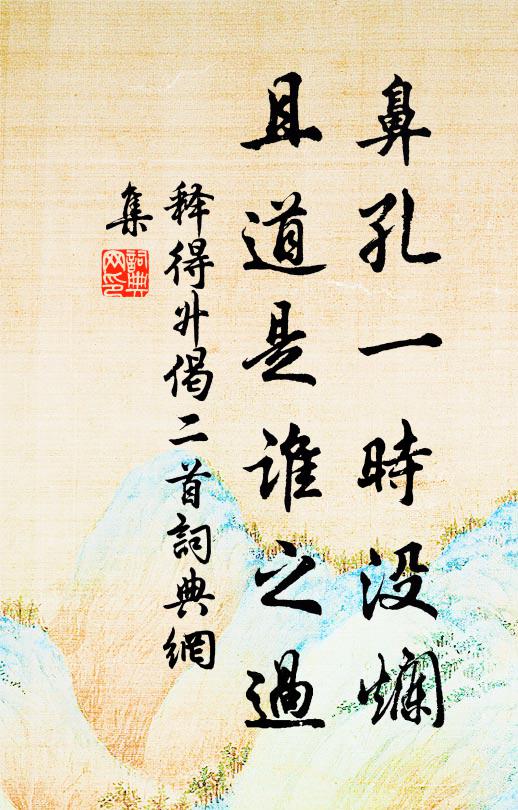 鼻孔一時没爛
且道是誰之過
释得升偈二首詞典網
集
詞典网印